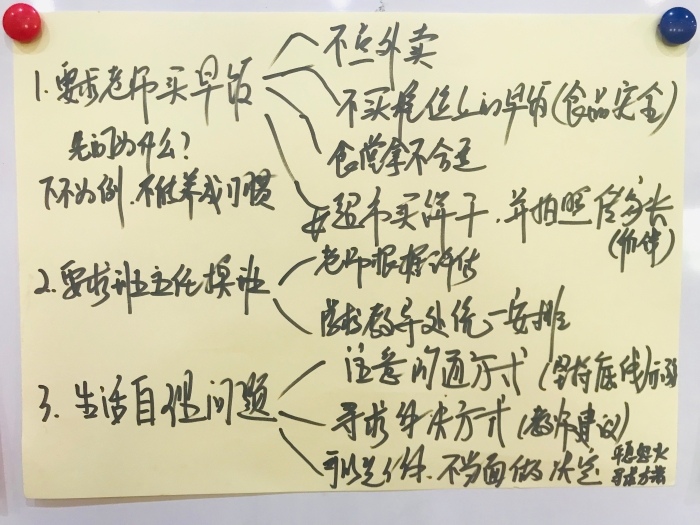 不点外卖
1. 要求老师买早饭
不买摊位上的早饭(食品安全)
先问为什么?
食堂拿不合适
下不为例.不能养成习惯
去超市买饼干.并拍照给家长
(价钱)
老师根据评估
2. 要求班主任换班
德教导处统一安排
注意沟通方式(坚持底线)
3. 生活自理问题
寻求解决方式(教师建议)
可以先,不当面做决定
平息怒火
寻求方案